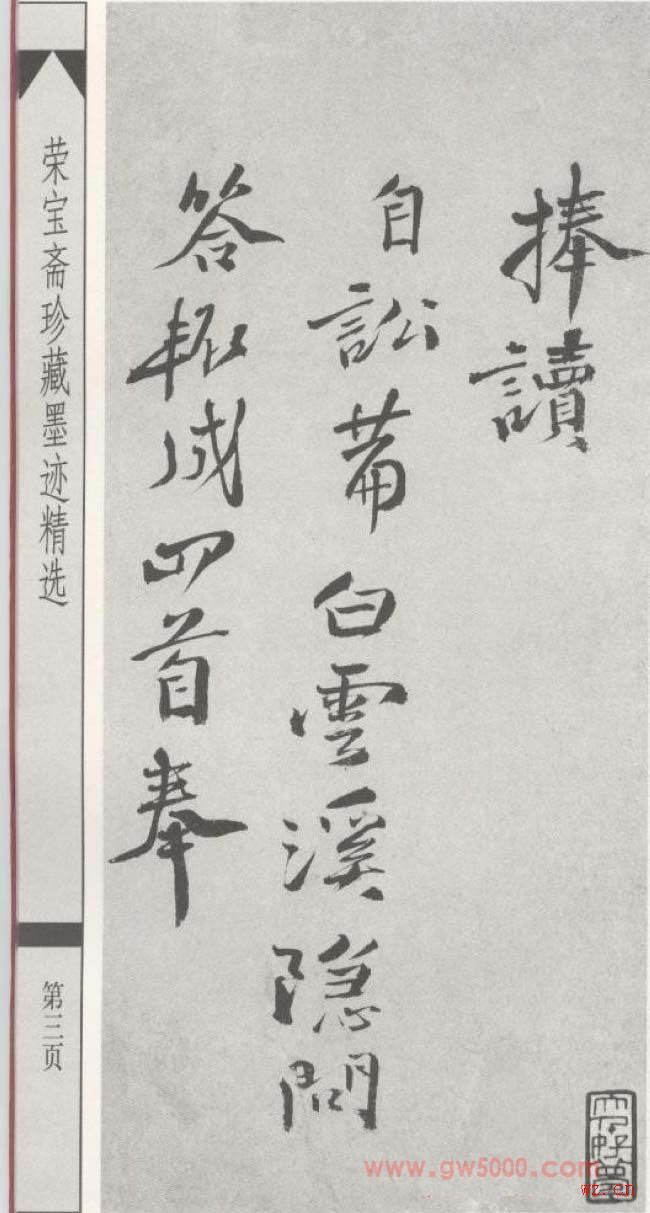 捧讀
自訟菴白雲溪隐問
答輒成四首奉
荣宝斋珍藏墨迹精选
第三页
www.gw5000.com
wz.cn